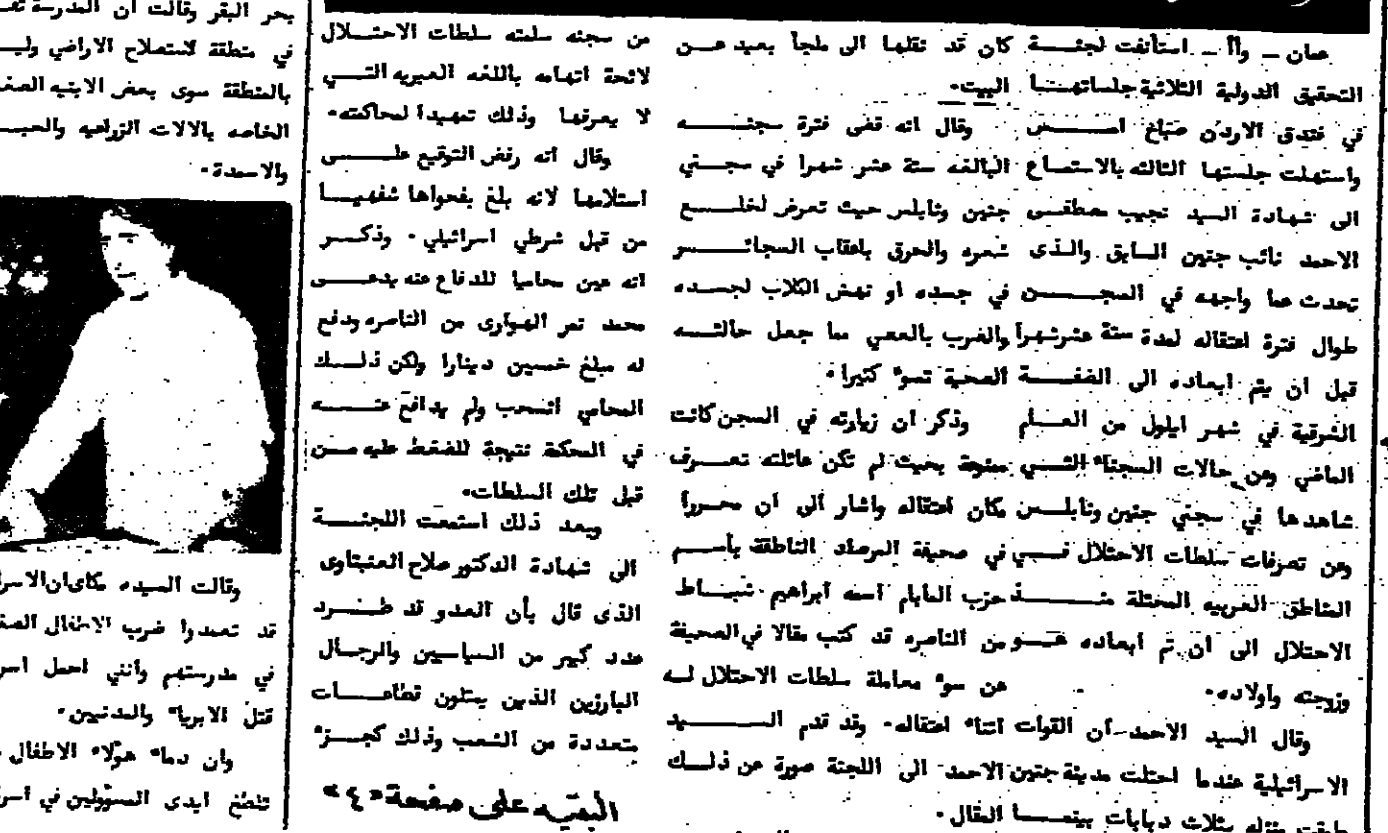 عمان – وأأ – استأنفت لجنة
التحقيق الدولية الثلاثية جلساتها
في فندق الاردن صباح امس
واستهلت جلستها الثالثه بالاستماع
الى شهادة السيد نجيب مصطفى
الاحمد نائب جنين السابق والذى
تحدث عما واجهه في السجن
طوال فترة اعتقاله لمدة ستة عشر شهرا
قبل ان يتم ابعاده الى الضفة
الشرقية في شهر ايلول من العام
الماضي وعن حالات السجناء التي
شاهدها في سجني جنين ونابلس
وعن تصرفات سلطات الاحتلال في
المناطق العربيه المحتلة منذ
الاحتلال الى أن تم ابعاده هو
وزوجته واولاده.
وقال السيد الاحمد أن القوات
الاسرائيلية عندما احتلت مدينة جنين
طوقت منزله بثلاث دبابات بينما
كان قد نقلها الى ملجأ بعيد عن
البيت.
وقال انه قضى فترة سجنه
البالغه ستة عشر شهرا في سجني
جنين ونابلس حيث تعرض لخلع
شعره والحرق باعقاب السجائر
في جسده او نهش الكلاب لجسده
والضرب بالعصي مما جعل حالته
الصحية تسوء كثيرا.
وذكر ان زيارته في السجن كانت
ممنوعة بحيث لم تكن عائلته تعرف
مكان اعتقاله واشار الى ان محررا
في صحيفة المرصاد الناطقة بأسم
حزب المابام اسمه ابراهيم شباط
من الناصره قد كتب مقالا في الصحيفة
عن سوء معاملة سلطات الاحتلال له
اثناء اعتقاله. وقد قدم السيد
الاحمد الى اللجنة صورة عن ذلك
المقال.
من سجنه سلمته سلطات الاحتلال
لائحة اتهامه باللغه العبريه التي
لا يعرفها وذلك تمهيدا لمحاكمته.
وقال انه رفض التوقيع على
استلامها لانه بلغ بفحواها شفهيا
من قبل شرطي اسرائيلي. وذكر
انه عين محاميا للدفاع عنه يدعى
محمد نمر الهوارى من الناصره ودفع
له مبلغ خمسين دينارا ولكن ذلك
المحامي انسحب ولم يدافع عنه
في المحكمة نتيجة للضغط عليه من
قبل تلك السلطات.
وبعد ذلك استمعت اللجنة
الى شهادة الدكتور صلاح العنبتاوى
الذى قال بأن العدو قد طرد
عدد كبير من السياسيين والرجال
البارزين الذين يمثلون قطاعات
متعددة من الشعب وذلك كجزء
البقيه على صفحة «٤»
بحر البقر وقالت ان المدرسة
في منطقة لاستصلاح الاراضي
بالمنطقة سوى بعض الابنيه
الخاصه بالالات الزراعيه
والاسمدة.
وقالت السيده
قد تعمدوا ضرب الاطفال
في مدرستهم وأنني احمل
قتل الابرياء والمدنيين.
وان دماء هؤلاء الاطفال
تلطخ ايدى المسؤولين في